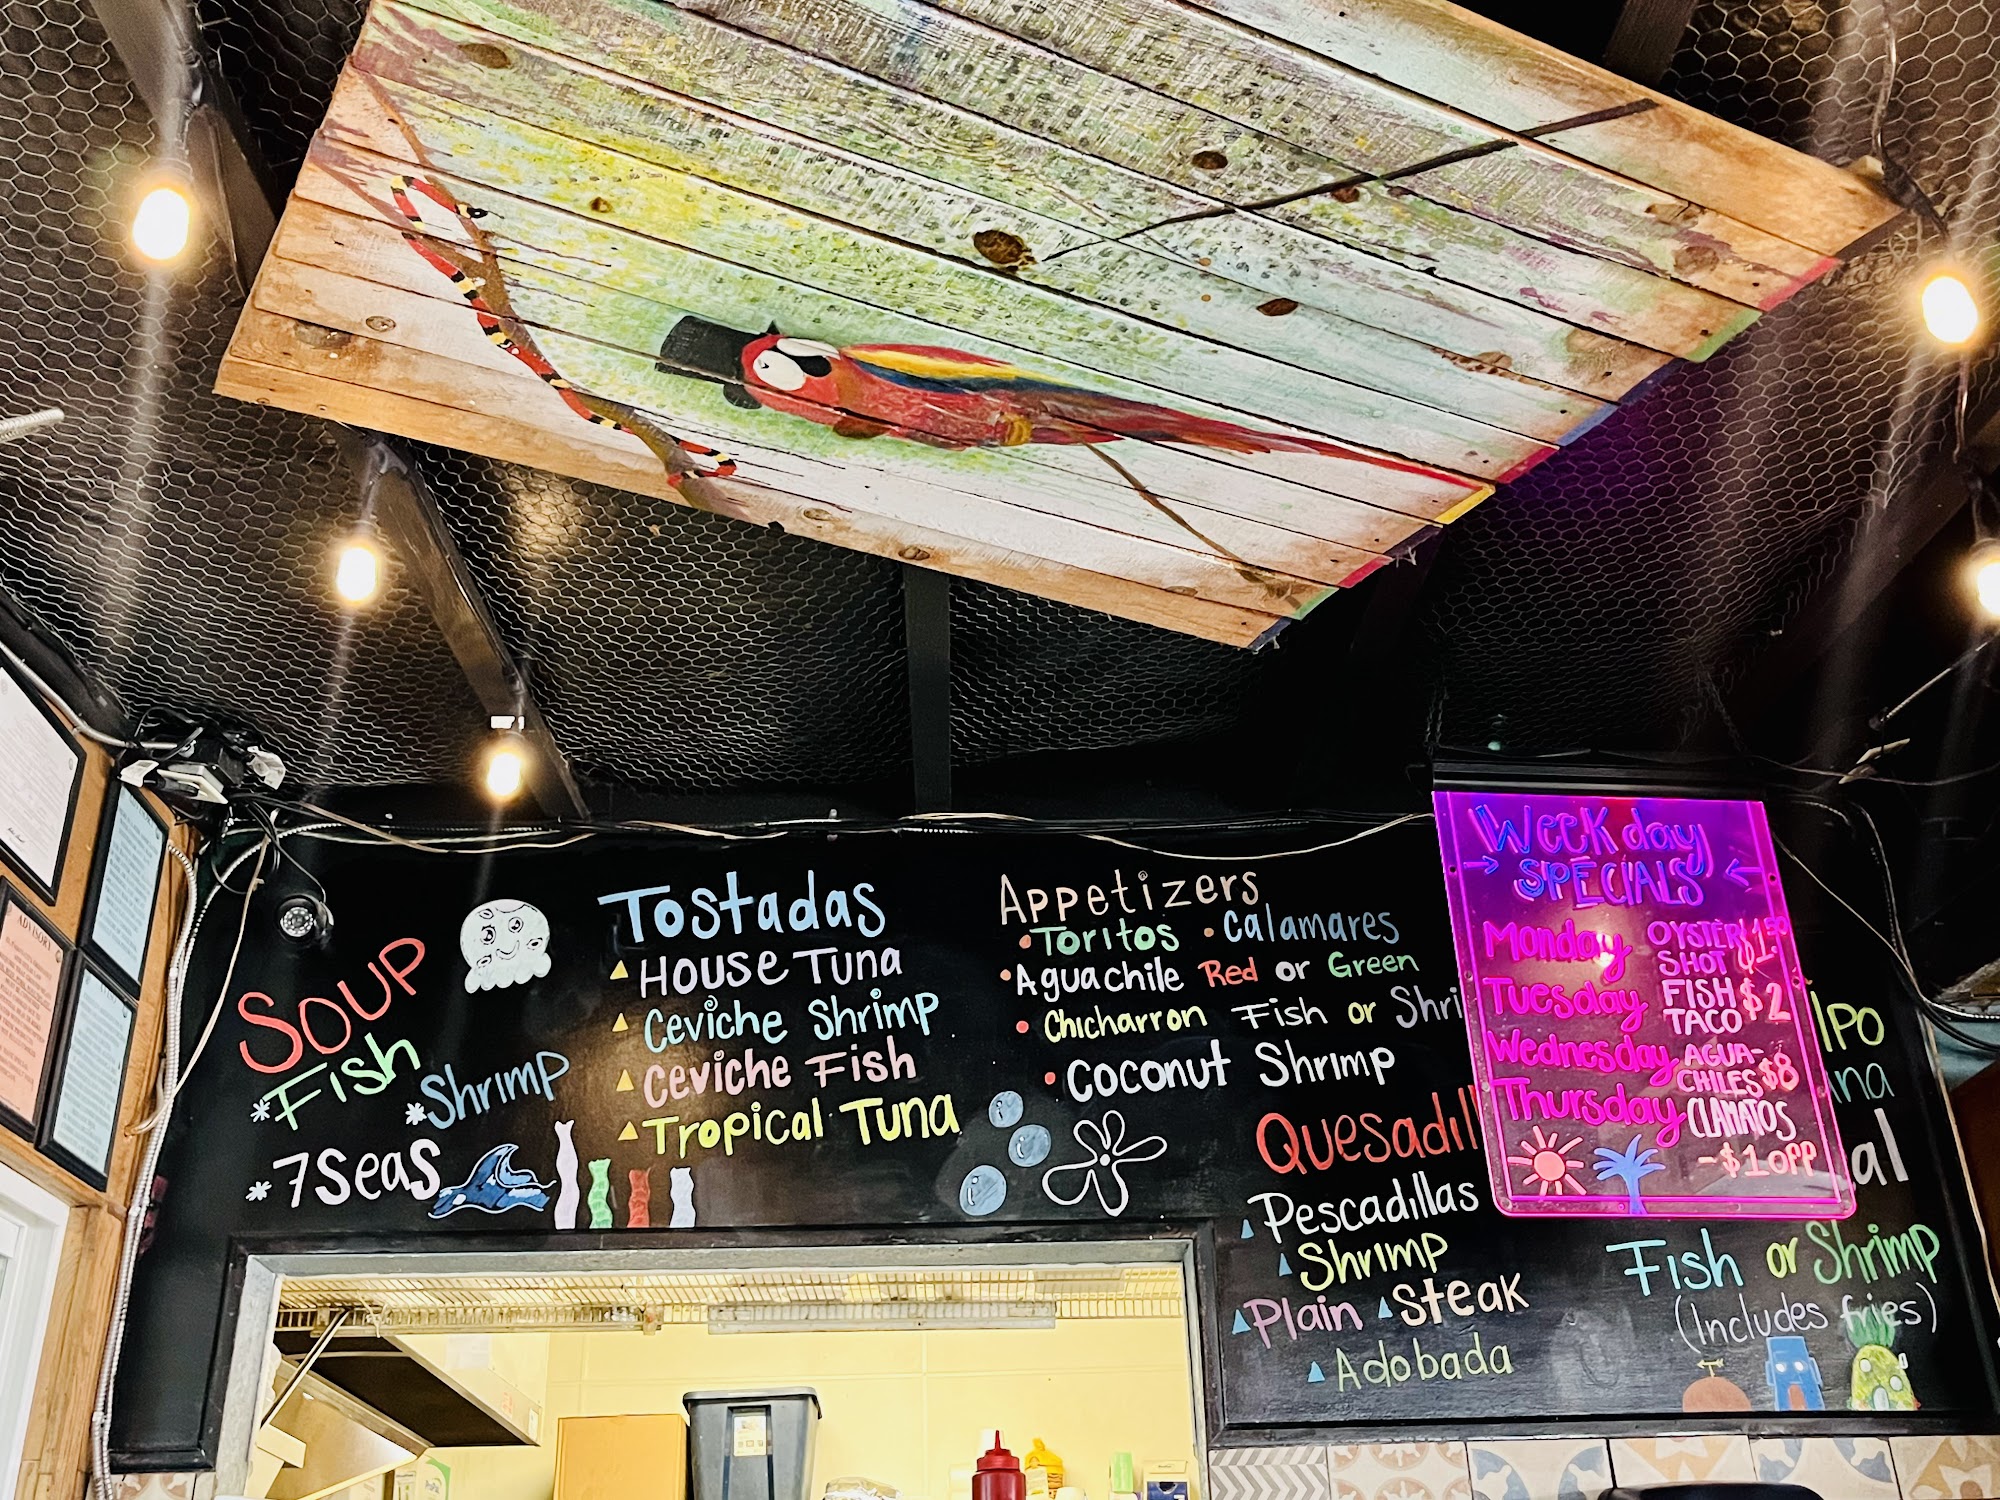 SOUP
* Fish
* Shrimp
* 7 Seas
Tostadas
House Tuna
Ceviche Shrimp
Ceviche Fish
Tropical Tuna
Appetizers
• Toritos • Calamares
• Aguachile Red or Green
• Chicharron Fish or Shri
• Coconut Shrimp
Quesadill
Pescadillas
Shrimp
Plain Steak
Adobada
WEEKday
SPECIALS
Monday OYSTER SHOT $1.50
Tuesday FISH TACO $2
Wednesday AGUA-CHILES $8
Thursday CLAMATOS
-$1 OFF
lpo
una
al
Fish or Shrimp
(Includes fries)
ADVISORY